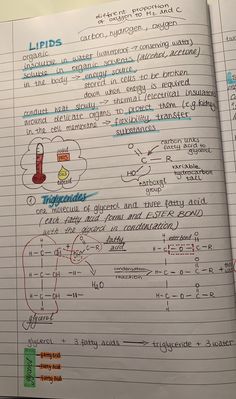 different proportion
of oxygen to H₂ and C
LIPIDS
carbon, hydrogen, oxygen
organic
insoluble in water (waterproof → conserving water)
soluble in organic solvents (alcohol, acetone)
in the body → energy source
stored in cells to be broken
down when energy is required
conduct heat slowly → thermal/electrical insulators
around delicate organs to protect them (e.g. kidneys)
in the cell membrane → flexibility, transfer
substances
solid
liquid
O
C — R
HO
carbon links
fatty acid to
glycerol
variable
hydrocarbon
tail
carboxyl
group
① Triglycerides
one molecule of glycerol and three fatty acid
(each fatty acid forms and ESTER BOND)
with the glycerol in condensation)
fatty
acid
ester bond
H — C — OH
C—R
H — C — O — C — R
H₂O
condensation
reaction
H — C — OH
—||—
H — C — O — C — R
H — C — OH
—||—
H — C — O — C — R
H
glycerol
glycerol + 3 fatty acids → triglyceride + 3 water
glycerol
fatty acid
fatty acid
fatty acid